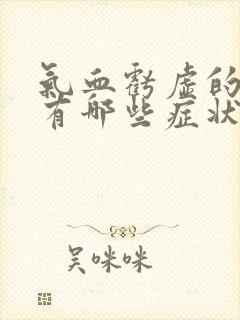 氣血虧虛的
有哪些症狀
吴咪咪